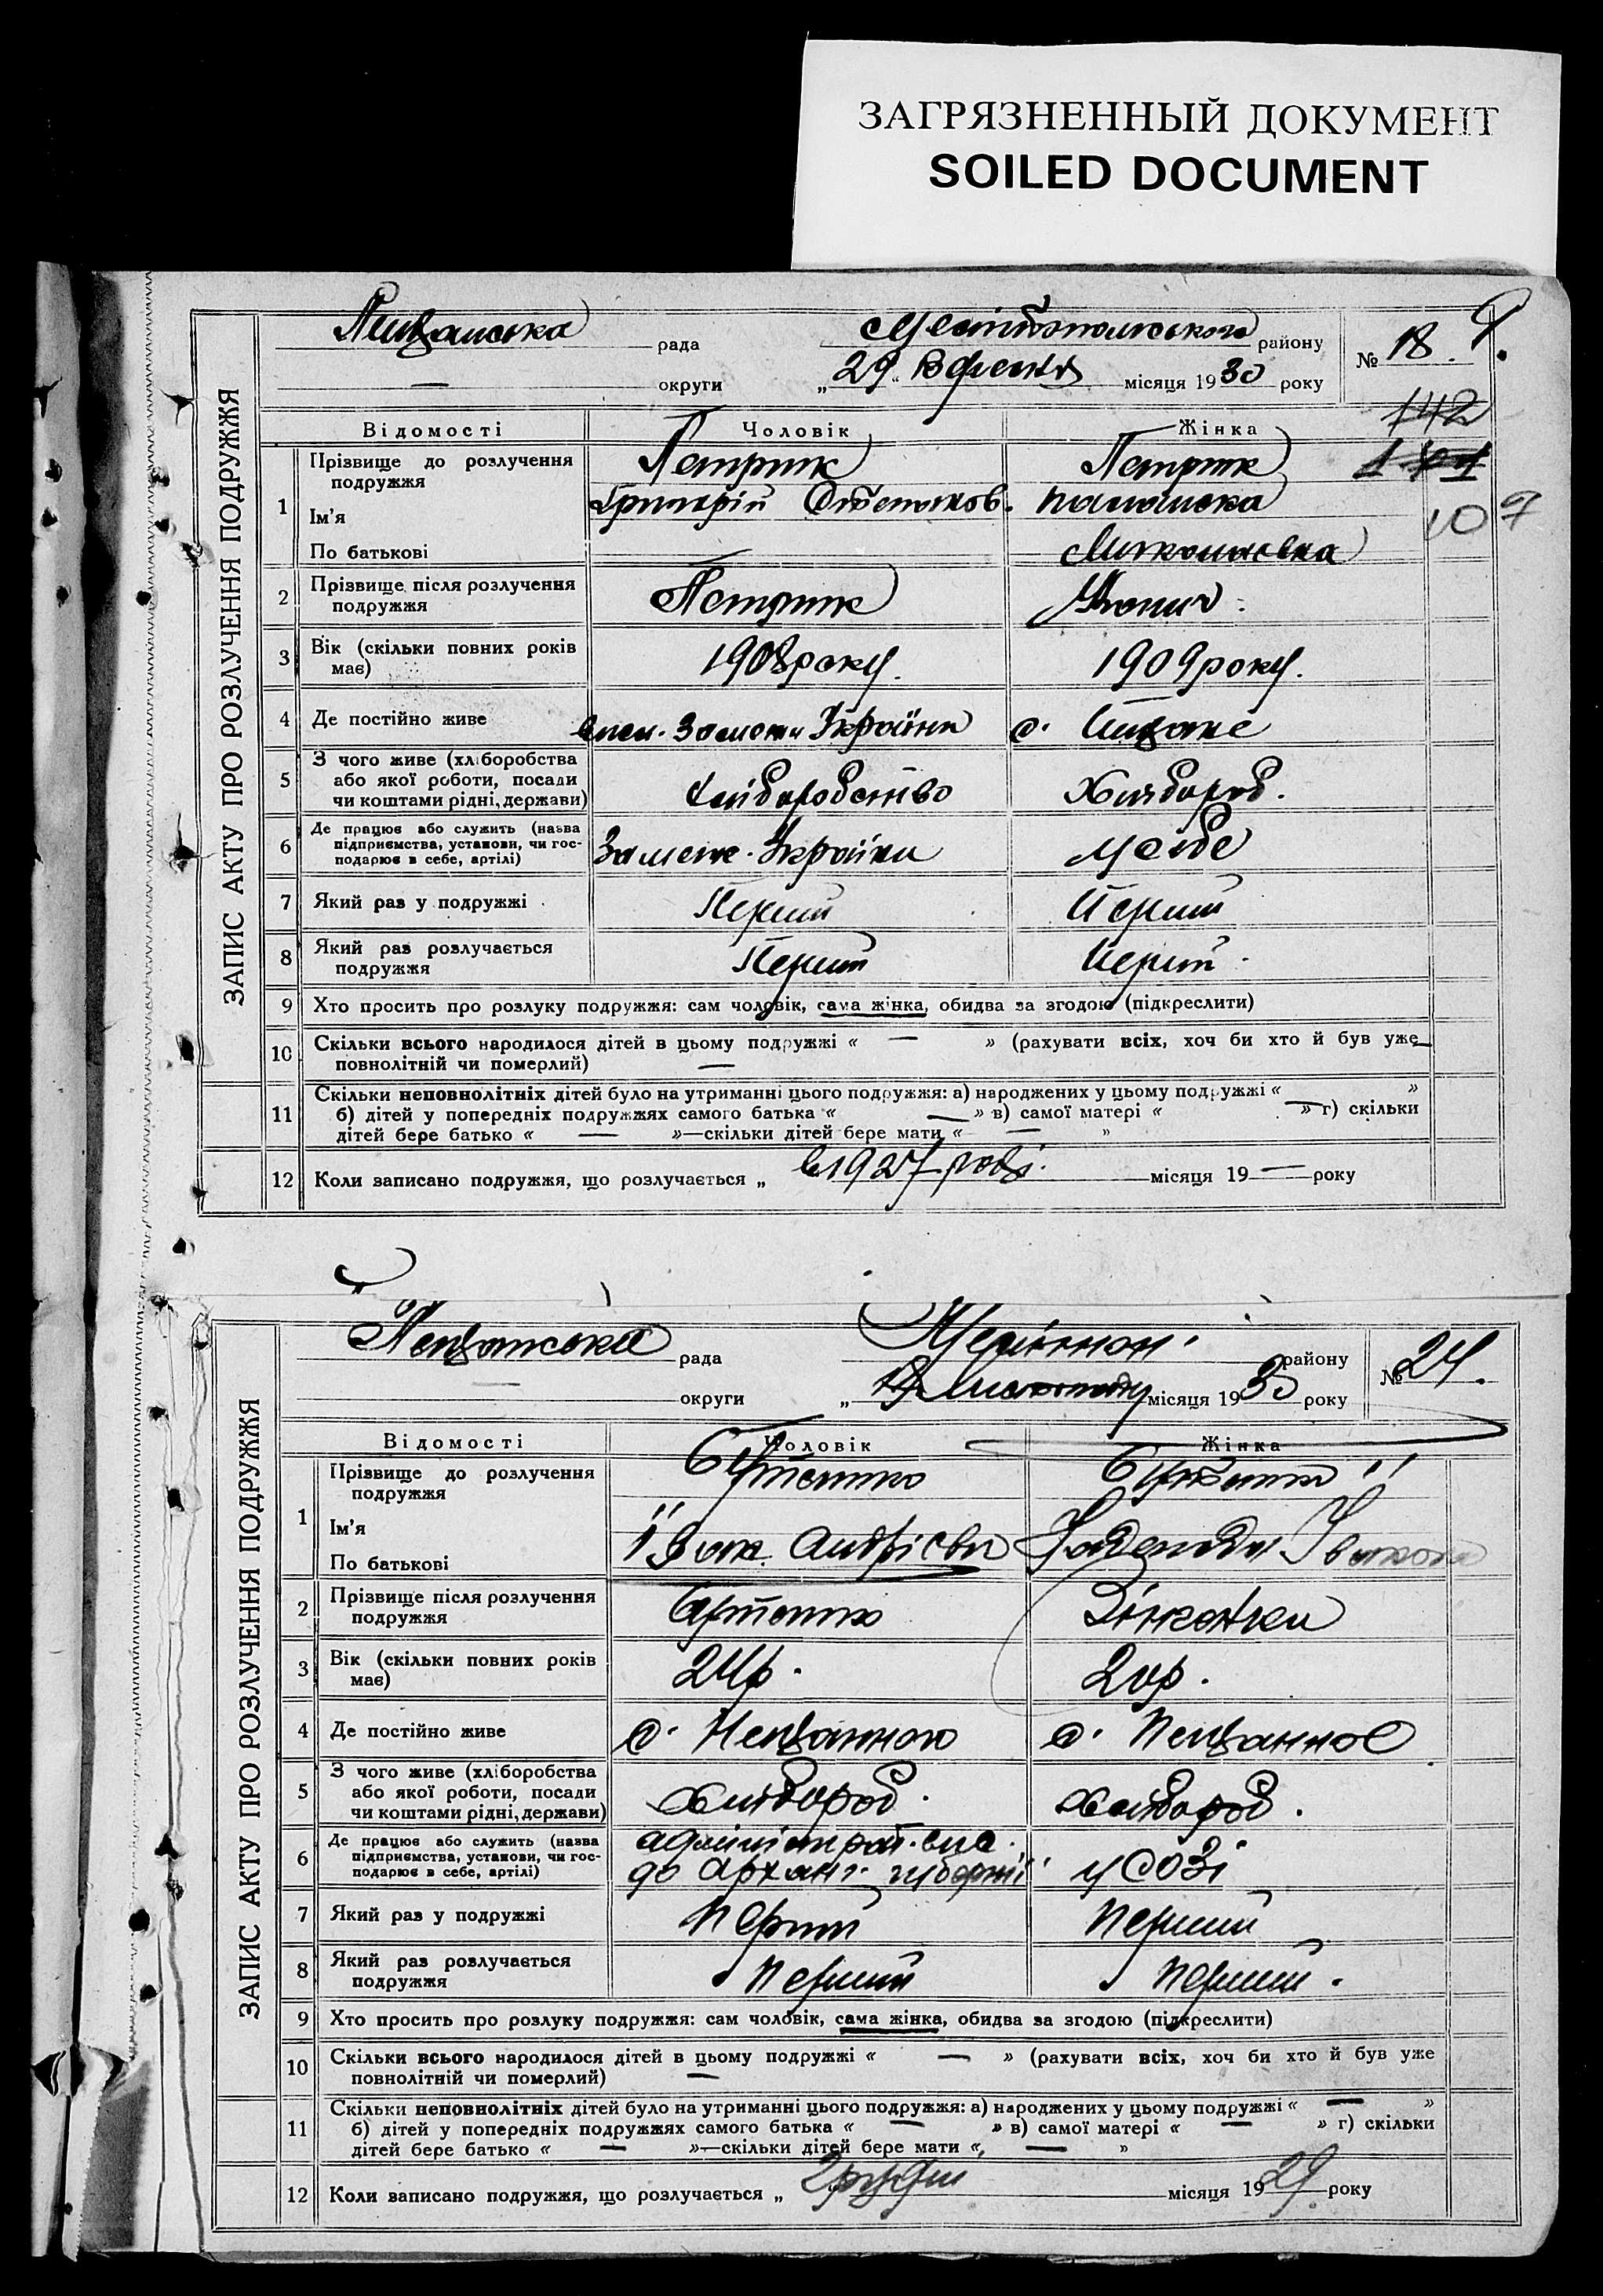 ЗАГРЯЗНЕННЫЙ ДОКУМЕНТ
SOILED DOCUMENT
ЗАПИС АКТУ ПРО РОЗЛУЧЕННЯ ПОДРУЖЖЯ
Пещанська рада Мелітопольського району № 18.
— округи „29“ Вересня місяця 1930 року
142
107
Відомості Чоловік Жінка
1 Прізвище до розлучення Петрик Петрик
подружжя
Ім'я Григорій Степанов. Палашка
По батькові Миколаєвна
2 Прізвище після розлучення Петрик
подружжя
3 Вік (скільки повних років 1908 року. 1909 року.
має)
4 Де постійно живе Україны с.
5 З чого живе (хліборобства
або якої роботи, посади Хліборобство Хлібороб.
чи коштами рідні, держави)
6 Де працює або служить (назва
підприємства, установи, чи гос- України у себе
подарює в себе, артілі)
7 Який раз у подружжі Перший Перший
8 Який раз розлучається Перший Перший
подружжя
9 Хто просить про розлуку подружжя: сам чоловік, сама жінка, обидва за згодою (підкреслити)
10 Скільки всього народилося дітей в цьому подружжі « — » (рахувати всіх, хоч би хто й був уже
повнолітній чи померлий) —
11 Скільки неповнолітніх дітей було на утриманні цього подружжя: а) народжених у цьому подружжі « — »
б) дітей у попередніх подружжях самого батька « — » в) самої матері « — » г) скільки
дітей бере батько « — »—скільки дітей бере мати « — »
12 Коли записано подружжя, що розлучається „ в 1927 році. місяця 19 — року
ЗАПИС АКТУ ПРО РОЗЛУЧЕННЯ ПОДРУЖЖЯ
Пещанська рада району № 24.
— округи „ Листопаду місяця 1930 року
Відомості Чоловік Жінка
1 Прізвище до розлучення
подружжя
Ім'я Іван Андрієв
По батькові
2 Прізвище після розлучення
подружжя
3 Вік (скільки повних років 24р.
має)
4 Де постійно живе с. Пещанного с. Пещанное
5 З чого живе (хліборобства
або якої роботи, посади Хлібороб. Хлібороб.
чи коштами рідні, держави)
6 Де працює або служить (назва адміністрат. вис.
підприємства, установи, чи гос- до Архан. губернії у СОЗі
подарює в себе, артілі)
7 Який раз у подружжі Перший Перший
8 Який раз розлучається Перший Перший.
подружжя
9 Хто просить про розлуку подружжя: сам чоловік, сама жінка, обидва за згодою (підкреслити)
10 Скільки всього народилося дітей в цьому подружжі « — » (рахувати всіх, хоч би хто й був уже
повнолітній чи померлий) —
11 Скільки неповнолітніх дітей було на утриманні цього подружжя: а) народжених у цьому подружжі « — »
б) дітей у попередніх подружжях самого батька « — » в) самої матері « — » г) скільки
дітей бере батько « — »—скільки дітей бере мати « — »
12 Коли записано подружжя, що розлучається „ Грудня місяця 1929 року